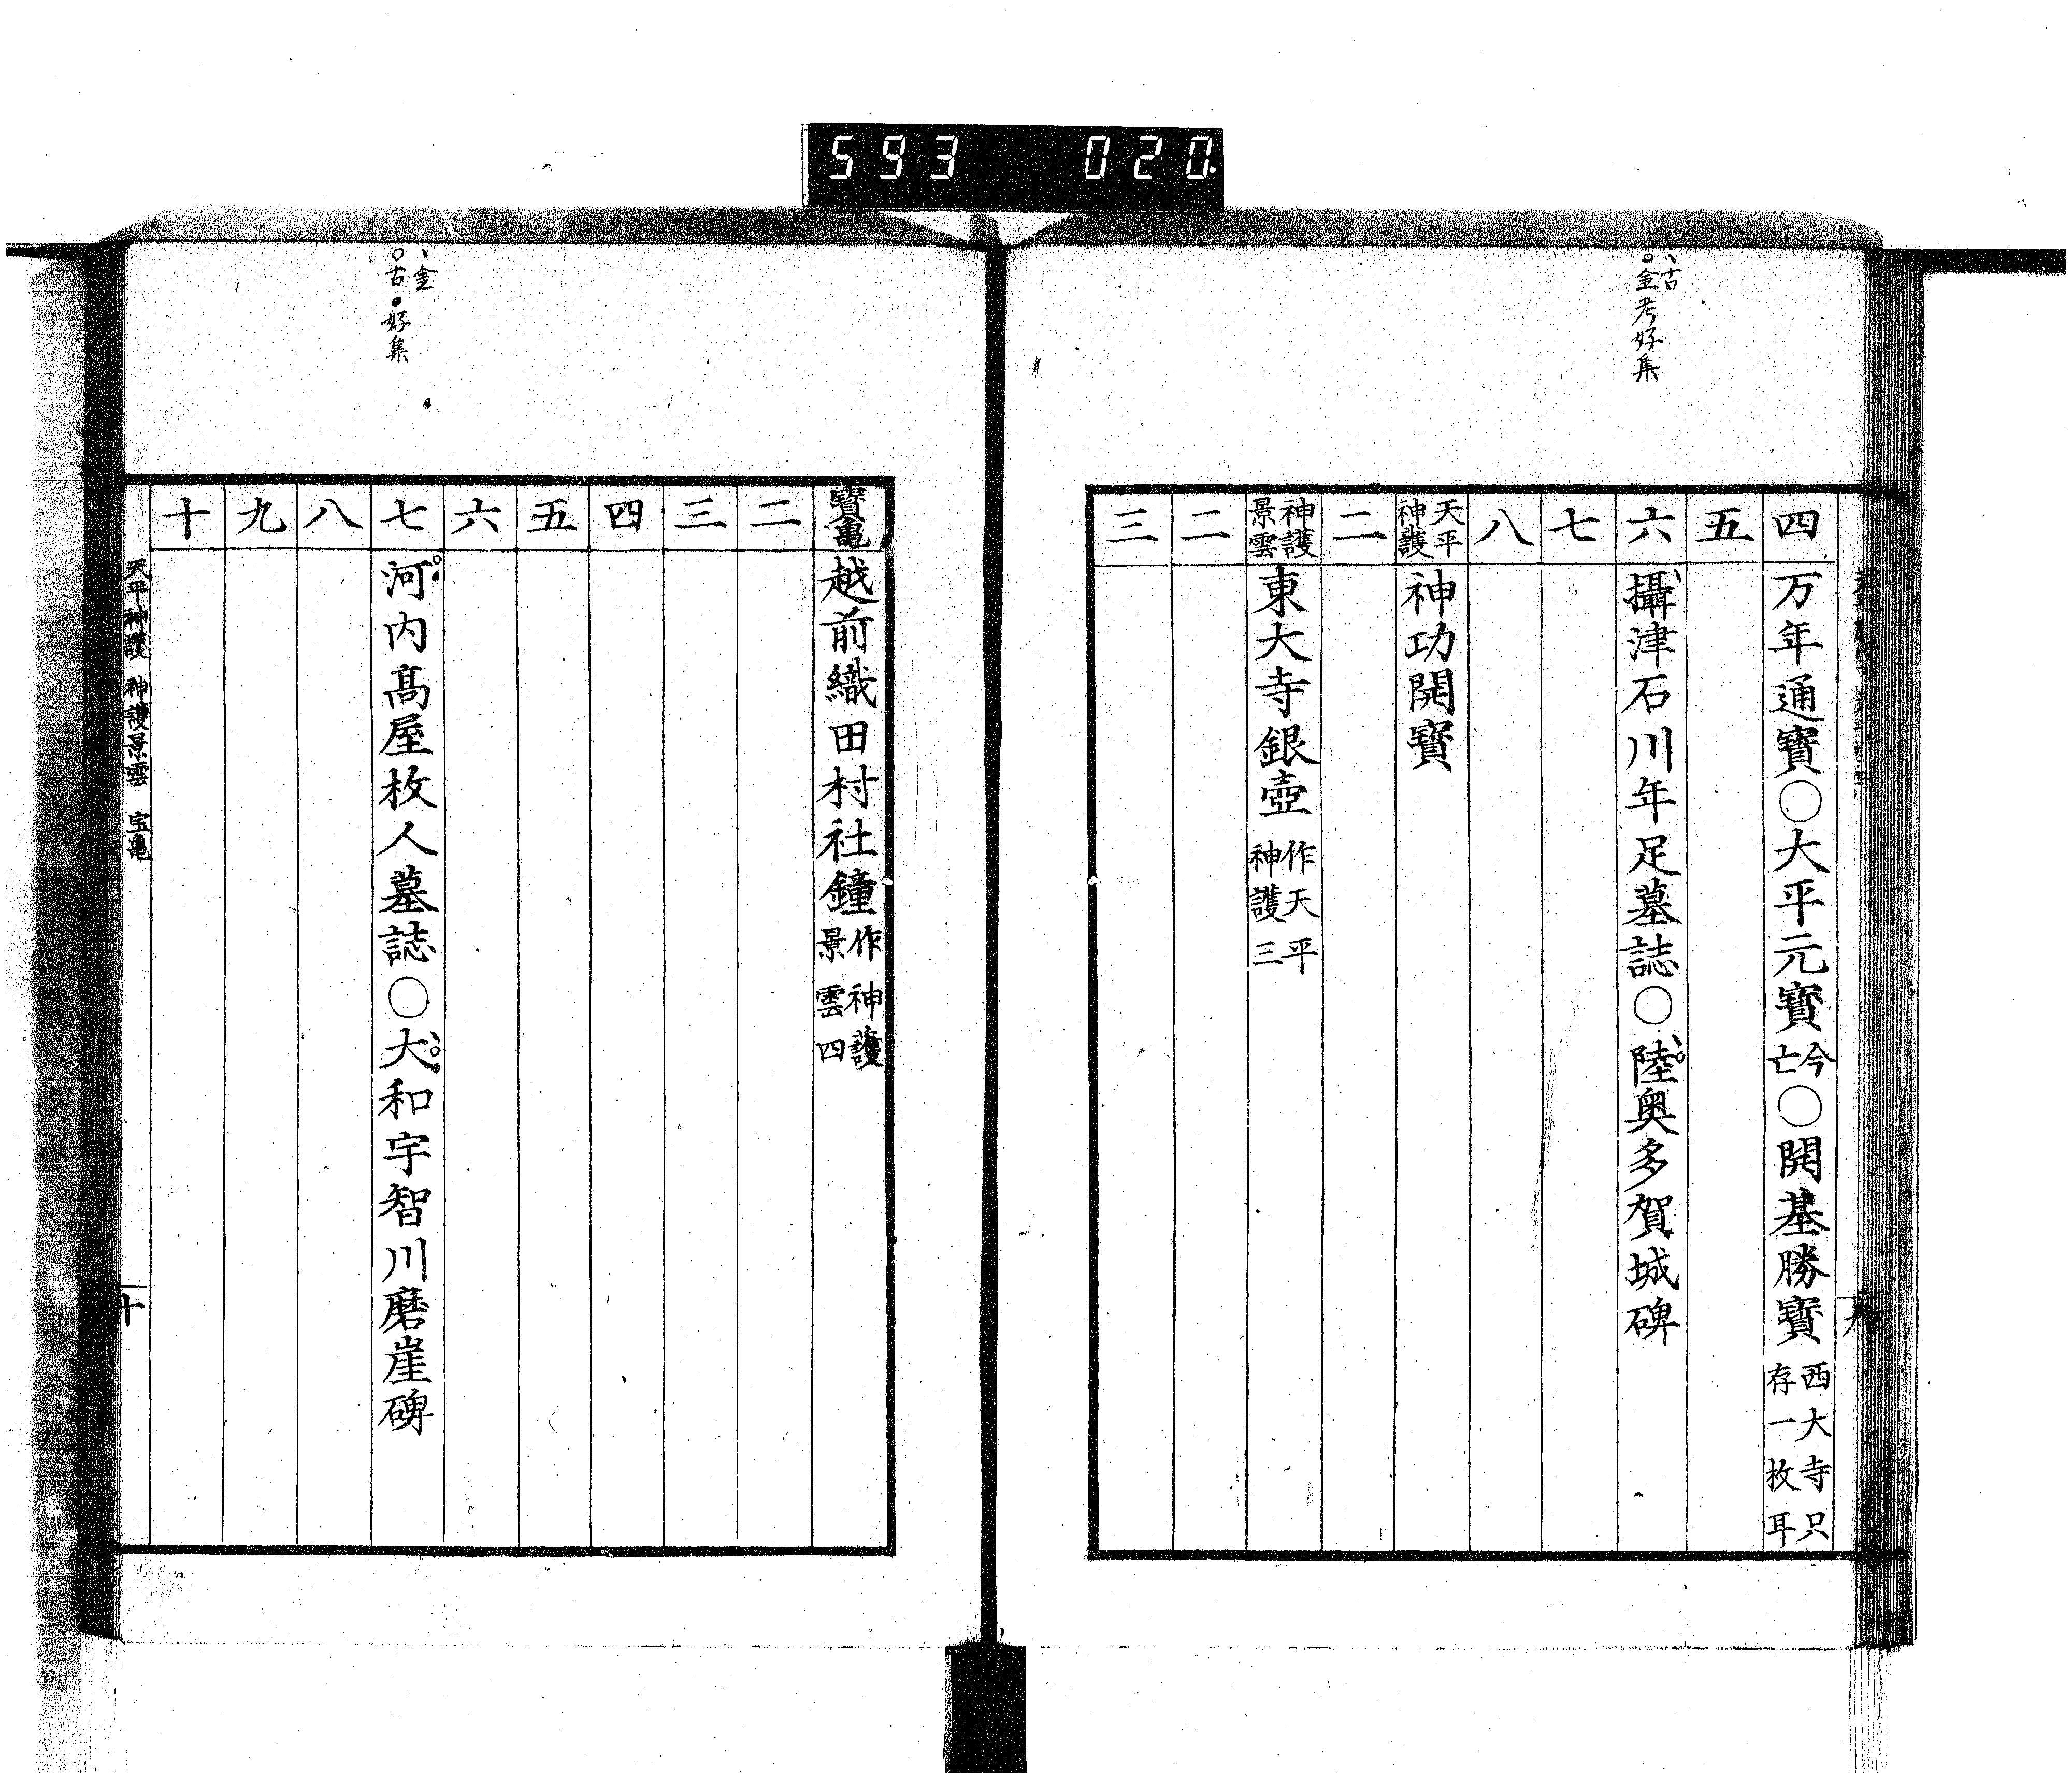 593 020
、古
○金考好集
四 万年通寶○大平元寶今亡○開基勝寶西大寺只存一枚耳
五
六 攝津石川年足墓誌○陸奥多賀城碑
七
八
天平神護 神功開寶
二
神護景雲 東大寺銀壺作天平神護三
二
三
、金
○古●好集
寶亀 越前織田村社鐘作神護景雲四
二
三
四
五
六
七 河内髙屋枚人墓誌○大和宇智川磨崖碑
八
九
十
天平神護 神護景雲 宝亀
十